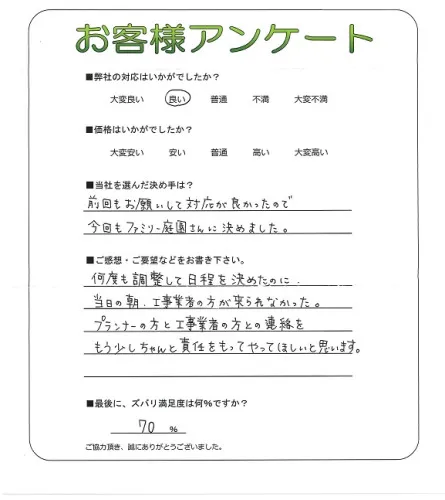 お客様アンケート
■弊社の対応はいかがでしたか?
大変良い 良い 普通 不満 大変不満
■価格はいかがでしたか?
大変安い 安い 普通 高い 大変高い
■当社を選んだ決め手は?
前回もお願いして対応が良かったので
今回もファミリー庭園さんに決めました。
■ご感想・ご要望などをお書き下さい。
何度も調整して日程を決めたのに、
当日の朝、工事業者の方が来られなかった。
プランナーの方と工事業者の方との連絡を
もう少しちゃんと責任をもってやってほしいと思います。
■最後に、ズバリ満足度は何%ですか?
70 %
ご協力頂き、誠にありがとうございました。